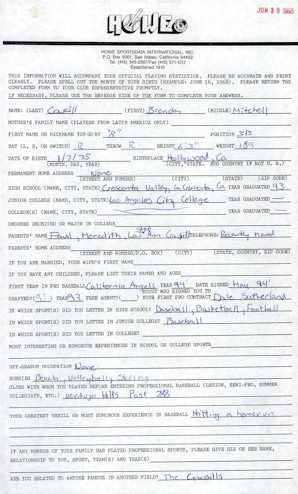 JUN 30 1995
HOWE
HOWE SPORTSDATA INTERNATIONAL, INC.
P.O. Box 5061, San Mateo, California 94402
Established 1910
THIS INFORMATION WILL ACCOMPANY YOUR OFFICIAL PLAYING STATISTICS. PLEASE BE ACCURATE AND PRINT
CLEARLY. PLEASE SPELL OUT THE MONTH OF YOUR BIRTH (EXAMPLE: JUNE 16, 1968). PLEASE RETURN THE
COMPLETED FORM TO YOUR CLUB REPRESENTATIVE PROMPTLY.
IF NECESSARY, PLEASE USE THE REVERSE SIDE OF THE FORM TO COMPLETE YOUR ANSWERS.
NAME: (LAST) Cowsill (FIRST) Brendon (MIDDLE) Mitchell
MOTHER'S FAMILY NAME (PLAYERS FROM LATIN AMERICA ONLY)
FIRST NAME OR NICKNAME YOU GO BY "B" POSITION
BAT (L, R, OR SWITCH) R THROW R HEIGHT 6'3" WEIGHT 189
DATE OF BIRTH 1/7/75 BIRTHPLACE Hollywood, Ca
(MONTH, DAY, YEAR) (CITY, STATE, AND COUNTRY IF NOT U. S.)
PERMANENT HOME ADDRESS None
(STREET AND NUMBER) (CITY) (STATE) (ZIP CODE)
HIGH SCHOOL (NAME, CITY, STATE) Crescenta Valley, La Crescenta, Ca YEAR GRADUATED 93
JUNIOR COLLEGE (NAME, CITY, STATE) Los Angeles City College YEAR GRADUATED
COLLEGE(S) (NAME, CITY, STATE) YEAR GRADUATED
DEGREES RECEIVED OR MAJOR IN COLLEGE
PARENTS' NAME Paul, Meredith, Ann Cowsill TELEPHONE Recently Moved
PARENTS' HOME ADDRESS
(STREET AND NUMBER/P.O. BOX) (CITY) (STATE, COUNTRY, ZIP CODE)
IF YOU ARE MARRIED, YOUR WIFE'S FIRST NAME
IF YOU HAVE ANY CHILDREN, PLEASE LIST THEIR NAMES AND AGES
FIRST TEAM IN PRO BASEBALL California Angels YEAR 94' DATE SIGNED May 94'
SCOUT WHO SIGNED YOU TO
DRAFTED YEAR 93 FREE AGENT( ) YOUR FIRST PRO CONTRACT Dale Sutherland
IN WHICH SPORT(S) DID YOU LETTER IN HIGH SCHOOL? Baseball, Basketball, Football
IN WHICH SPORT(S) DID YOU LETTER IN JUNIOR COLLEGE? Baseball
IN WHICH SPORT(S) DID YOU LETTER IN COLLEGE?
MOST INTERESTING OR HUMOROUS EXPERIENCES IN SCHOOL OR COLLEGE SPORTS
OFF-SEASON OCCUPATION None
HOBBIES Beach, Volleyball, Skiing
CLUBS WITH WHOM YOU PLAYED BEFORE ENTERING PROFESSIONAL BASEBALL (LEGION, SEMI-PRO, SUMMER
COLLEGIATE, ETC.) Verdugo Hills Post 288
YOUR GREATEST THRILL OR MOST HUMOROUS EXPERIENCE IN BASEBALL Hitting a homerun
IF ANY MEMBER OF YOUR FAMILY HAS PLAYED PROFESSIONAL SPORTS, PLEASE GIVE HIS OR HER NAME,
RELATIONSHIP TO YOU, SPORT, TEAM(S) AND YEAR(S)
ARE YOU RELATED TO ANYONE FAMOUS IN ANOTHER FIELD? The Cowsills